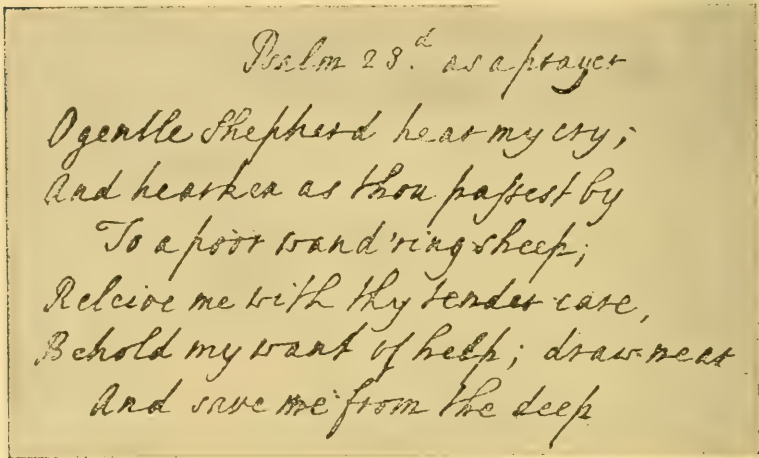 Psalm 23.d as a prayer
O gentle Shepherd hear my cry;
And hearken as thou passest by
To a poor wand'ring sheep;
Releive me with thy tender care,
Behold my want of help; draw near
And save me from the deep